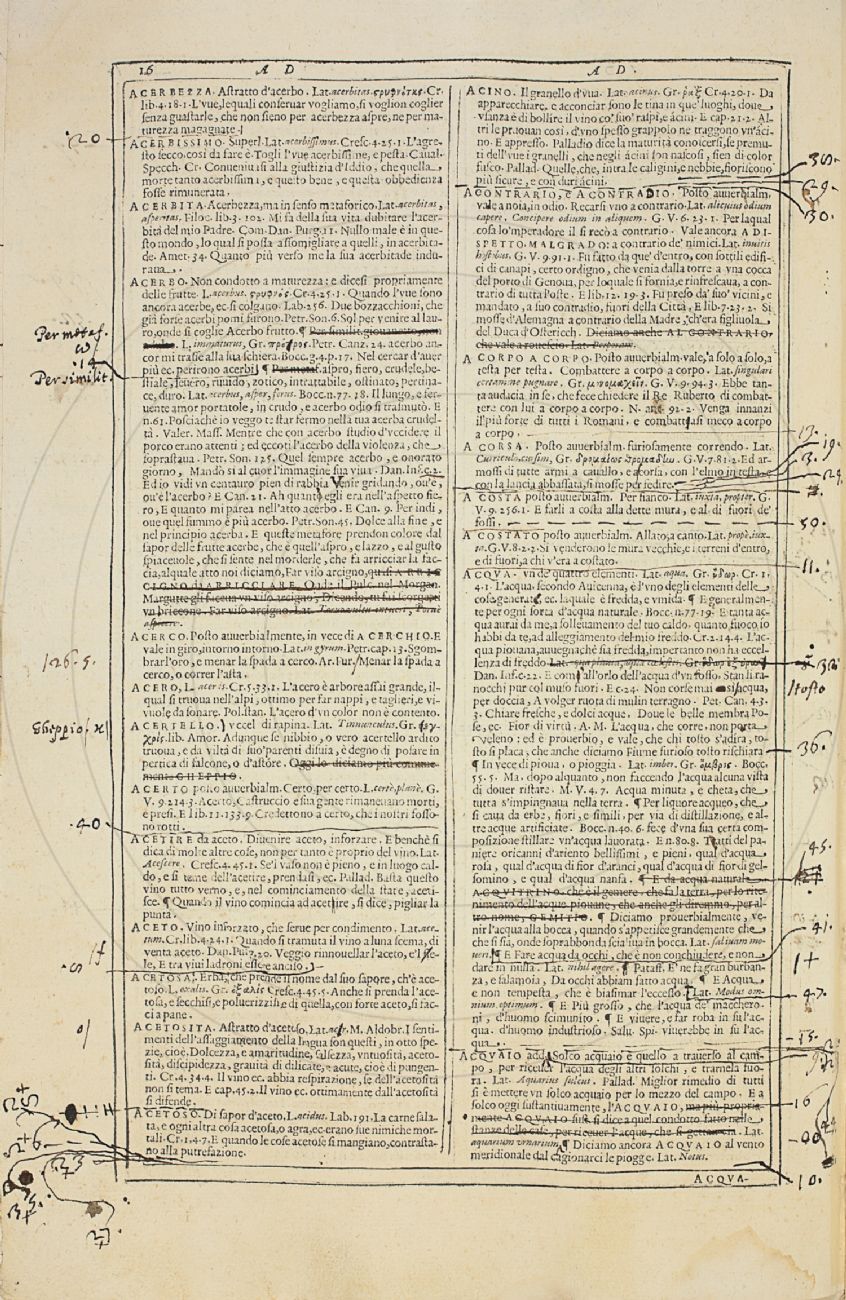 16 A D
A D.
ACERBEZZA. Astratto d'acerbo. Lat. acerbitas. Cr.
lib.4.18.1. L'vue, lequali conseruar vogliamo, si voglion coglier
senza guastarle, che non sieno per acerbezza aspre, ne per ma-
turezza magagnate.
ACERBISSIMO. Superl. Lat. acerbissimus. Cresc.4.25.1. L'agre-
sto secco, così da fare è. Togli l'vue acerbissime, e pesta. Caual.
Specch. Cr. Conueniusi alla giustizia d'Iddio, che quella
morte tanto acerbissima, e questo bene, e questa obbedienza
fosse rimunerata.
ACERBITA. Acerbezza, ma in senso metaforico. Lat. acerbitas,
asperitas. Filoc. lib.3. 102. Mi fa della sua vita dubitare l'acer-
bità del mio Padre. Com. Dan. Purg. 11. Nullo male è in que-
sto mondo, lo qual si possa assomigliare a quelli, in acerbita-
de. Amet.34. Quanto più verso me la sua acerbitade indu-
raua.
ACERBO. Non condotto a maturezza: e dicesi propriamente
delle frutte. L. acerbus. Cr.4.25.1. Quando l'vue sono
ancora acerbe, ec. si colgano. Lab.256. Due bozzacchioni, che
già forse acerbi pomi furono. Petr. Son.6. Sol per venire al lau-
ro, onde si coglie Acerbo frutto. ¶ Per similit. giouanetto, non
L. immaturus, Gr. Petr. Canz. 24. acerbo an-
cor mi trasse alla sua schiera. Bocc. g.4.p.17. Nel cercar d'auer
più ec. perirono acerbi. ¶ Per metaf. aspro, fiero, crudele, be-
stiale, seuero, ruuido, zotico, intrattabile, ostinato, pertina-
ce, duro. Lat. acerbus, asper, ferus. Bocc. n.77. 18. Il lungo, e fer-
uente amor portatole, in crudo, e acerbo odio si trasmutò. E
n.61. Posciachè io veggo te star fermo nella tua acerba crudel-
tà. Valer. Mass. Mentre che con acerbo studio d'vccidere il
porco erano attenti; ed eccoti l'acerbo della violenza, che
soprastaua. Petr. Son.25. Quel sempre acerbo, e onorato
giorno, Mandò sì al cuor l'immagine sua viua. Dan. Inf.c.2.
Ed io vidi vn centauro pien di rabbia Venir gridando, ou'e,
ou'è l'acerbo? E Can. 21. Ah quanto egli era nell'aspetto fie-
ro, E quanto mi parea nell'atto acerbo. E Can. 9. Per indi,
oue quel fummo è più acerbo. Petr. Son.45. Dolce alla fine, e
nel principio acerba. E queste metafore prendon colore dal
sapor delle frutte acerbe, che è quell'aspro, e lazzo, e al gusto
spiaceuole, che si sente nel morderle, che fa arricciar la fac-
cia, alquale atto noi diciamo, Far viso arcigno, quasi ARRIC
CIGNO da ARRICCIARE. Onde il Pulc. nel Morgan.
Margutte gli faceua vn viso arcigno, Dicendo, tu fai scorgati
vn briccone. Far viso arcigno. Lat.
ACERCO. Posto auuerbialmente, in vece di A CERCHIO. E
vale in giro, intorno intorno. Lat. in gyrum. Petr. cap. 13. Sgom-
brar l'oro, e menar la spada a cerco. Ar. Fur. Menar la spada a
cerco, o correr l'asta.
ACERO, L. acer is. Cr.5.33.1. L'acero è arbore assai grande, il-
qual si truoua nell'alpi, ottimo per far nappi, e taglieri, e vi-
uuole da sonare. Pol. stan. L'acero d'vn color non è contento.
ACERTELLO. Vccel di rapina. Lat. Tinnunculus. Gr.
lib. Amor. Adunque se nibbio, o vero acertello ardito
truoua, e da viltà di suo' parenti disuia, è degno di posare in
pertica di falcone, o d'astore. Oggi lo diciamo più comune-
mente GHEPPIO.
ACERTO posto auuerbialm. Certo, per certo. L. certè, planè. G.
V. 9.214.3. Acerto, Castruccio e sua gente rimaneuano morti,
e presi. E lib.11.133.9. Credettono a certo, che i nostri fosso-
no rotti.
ACETIRE da aceto. Diuenire aceto, inforzare. E benchè si
dica di molte altre cose, non per tanto è proprio del vino. Lat.
Acescere. Cresc.4.45.1. Se'l vaso non è pieno, e in luogo cal-
do, e si teme dell'acetire, prendasi, ec. Pallad. Basta questo
vino tutto verno, e, nel cominciamento della state, acetis-
sce. ¶ Quando il vino comincia ad acetire, si dice, pigliar la
punta.
ACETO. Vino inforzato, che serue per condimento. Lat. ace-
tum. Cr.lib.4.24.1. Quando si tramuta il vino a luna scema, di
venta aceto. Dan. Pur.20. Veggio rinnouellar l'aceto, e'l fie-
le, E tra viui ladroni essere anciso.
ACETOSA. Erba, che prende il nome dal suo sapore, ch'è ace-
toso. L. oxalis. Gr. ὀξαλίς Cresc.4.45.5. Anche si prenda l'ace-
tosa, e secchisi, e poluerizzisi e di quella, con forte aceto, si fac-
ci a pane.
ACETOSITA. Astratto d'acetoso. Lat. acor. M. Aldobr. I senti-
menti dell'assaggiamento della lingua son questi, in otto spe-
zie, cioè. Dolcezza, e amaritudine, salsezza, vntuosità, aceto-
sità, discipidezza, grauità di dilicate, e acute, cioè di pungen-
ti. Cr.4.34.4. Il vino ec. abbia respirazione, se dell'acetosità
non si tema. E cap.45.2. Il vino ec. ottimamente dall'acetosità
si difende.
ACETOSO. Di sapor d'aceto. L. acidus. Lab.191. La carne sala-
ta, e ogni altra cosa acetosa, o agra, ec. erano sue nimiche mor-
tali. Cr.1.4.7. E quando le cose acetose si mangiano, contrasta-
no alla putrefazione.
ACINO. Il granello d'vua. Lat. acinus. Gr. ῥὰξ Cr.4.20.1. Da
apparecchiare, e acconciar sono le tina in que' luoghi, doue
vsanza è di bollire il vino co' suo' raspi, e àcini. E cap.21.2. Al-
tri le pruouan così, d'vno spesso grappolo ne traggono vn'àci-
no. E appresso. Palladio dice la maturità conoscersi, se premu-
ti dell'vue i granelli, che negli àcini son nascosi, sien di color
fusco. Pallad. Quelle, che, intra le caligini, e nebbie, fioriscono
più sicure, e con duri àcini.
A CONTRARIO, e A CONTRADIO. Posto auuerbialm.
vale a noia, in odio. Recarsi vno a contrario. Lat. alicuius odium
capere. Concipere odium in aliquem. G. V. 6. 23. 1. Per laqual
cosa lo'mperadore il si recò a contrario. Vale ancora A DI-
SPETTO, MALGRADO: a contrario de' nimici. Lat. inuitis
hostibus. G. V. 9.91.1. Fu fatto da que' d'entro, con sottili edifi-
ci di canapi, certo ordigno, che venia dalla torre a vna cocca
del porto di Genoua, per loquale si fornia, e rinfrescaua, a con-
trario di tutta l'oste. E lib.12. 19.3. Fu preso da' suo' vicini, e
mandato, a suo contradio, fuori della Città, E lib.7.23.2. Si
mosse d'Alemagna a contrario della Madre, ch'era figliuola
del Duca d'Ostericch. Diciamo anche AL CONTRARIO,
che vale a rouescio. Lat.
A CORPO A CORPO. Posto auuerbialm. vale, a solo a solo, a
testa per testa. Combattere a corpo a corpo. Lat. singulari
certamine pugnare. Gr. G. V. 9.94.3. Ebbe tan-
ta audacia in se, che fece chiedere il Re Ruberto di combat-
tere con lui a corpo a corpo. N. ant. 92.2. Venga innanzi
il più forte di tutti i Romani, e combattasi meco a corpo
a corpo.
A CORSA. Posto auuerbialm. furiosamente correndo. Lat.
Curriculo, cursim, Gr. G.V.7.81.2. Ed ar-
mossi di tutte armi a cauallo, e a corsa, con l'elmo in testa, e
con la lancia abbassata, si mosse per fedire.
A COSTA posto auuerbialm. Per fianco. Lat. iuxta, propter. G.
V. 9. 256.1. E farli a costa alla dette mura, e al di fuori de'
fossi.
A COSTATO posto auuerbialm. Allato, a canto. Lat. propè, iux-
ta. G.V.8.2.3. Si venderono le mura vecchie, e i terreni d'entro,
e di fuori, a chi v'era a costato.
ACQVA. vn de' quattro elementi. Lat. aqua. Gr. ὕδωρ. Cr. 1.
4.1. L'acqua, secondo Auicenna, è l'vno degli elementi delle
cose generate, ec. laquale è fredda, e vmida. ¶ E generalmen-
te per ogni sorta d'acqua naturale. Bocc.n.77.19. E tanta ac-
qua aurai da me, a solleuamento del tuo caldo, quanto fuoco, io
habbi da te, ad alleggiamento del mio freddo. Cr.2.14.4. L'ac-
qua piouana, auuegnachè sia fredda, impertanto non ha eccel-
lenza di freddo.
Dan. Inf.c.22. E com' all'orlo dell'acqua d'vn fosso. Stan li ra-
nocchi pur col muso fuori. E c.24. Non corse mai sì acqua,
per doccia, A volger ruota di mulin terragno. Pet. Can. 4.3.
3. Chiare fresche, e dolci acque. Doue le belle membra Po-
se, ec. Fior di virtù. A. M. L'acqua, che corre, non porta
veleno: ed è prouerbio, e vale, che chi tosto s'adira, to-
sto si placa, che anche diciamo Fiume furioso tosto rischiara
¶ In vece di pioua, o pioggia. Lat. imber. Gr. ὄμβρος. Bocc.
55.5. Ma, dopo alquanto, non faccendo l'acqua alcuna vista
di douer ristare. M. V. 4.7. Acqua minuta, e cheta, che
tutta s'impingnaua nella terra. ¶ Per liquore acqueo, che
si caua da erbe, fiori, e simili, per via di distillazione, e al-
tre acque artificiate. Bocc. n.40.6. fece d'vna sua certa com-
posizione stillare vn'acqua lauorata. E n.80.8. Tratti del pa-
niere oricanni d'ariento bellissimi, e pieni, qual d'acqua
rosa, qual d'acqua di fior d'aranci, qual d'acqua di fior di gel-
somino, e qual d'acqua nanfa. ¶ E da acqua naturale
ACQVITRINO, che è il gemere, che fa la terra, per lo rite-
nimento dell'acque piouane, che anche gli diremmo, per al-
tro nome, GEMITIO. ¶ Diciamo prouerbialmente, ve-
nir l'acqua alla bocca, quando s'appetisce grandemente che
che si sia, onde soprabbonda scialiua in bocca. Lat. saliuam mo-
ueri. ¶ E Fare acqua da occhi, che è non conchiudere, e non
dare in nulla. Lat. nihil agere. ¶ Pataff. E' ne fa gran burban-
za, e salamoia, Da occhi abbiam fatto acqua. ¶ E Acqua
e non tempesta, che è biasimar l'eccesso. Lat. Modus om-
nium optimum. ¶ E Più grosso, che l'acqua de' macchero-
ni, d'huomo scimunito. ¶ E viuere, e far roba in su l'ac-
qua. d'huomo industrioso. Salu. Spi. viuerebbe in su l'ac-
qua.
ACQVAIO add. Solco acquaio è quello a trauerso al cam-
po, per riceuer l'acqua degli altri solchi, e tramela fuo-
ra. Lat. Aquarius sulcus. Pallad. Miglior rimedio di tutti
si è mettere vn solco acquaio per lo mezzo del campo. E a
solco oggi sustantiuamente, l'ACQVAIO, ma più propria-
mente ACQVAIO sust. si dice a quel condotto fatto nelle
stanze delle case, per riceuer l'acque, che si gettan via. Lat.
aquarium vrnarium. ¶ Diciamo ancora ACQVAIO al vento
meridionale dal cagionarci le piogge. Lat. Notus.
ACQVA-
20
Per metaf.
14
Per similit.
126.5.
40
38.
29.
30.
17.
19.
3.
29.
50.
11.
36.
45.
41.
47.
15.
16
10.